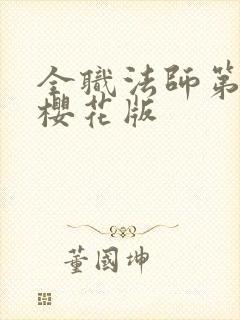 全職法師第
櫻花版
董國坤